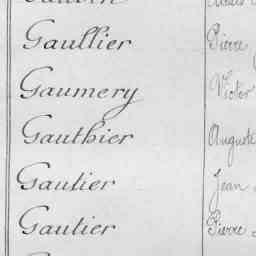 Gaullier Pierre
Gaumery Victor
Gauthier Auguste
Gautier Jean
Gautier Pierre